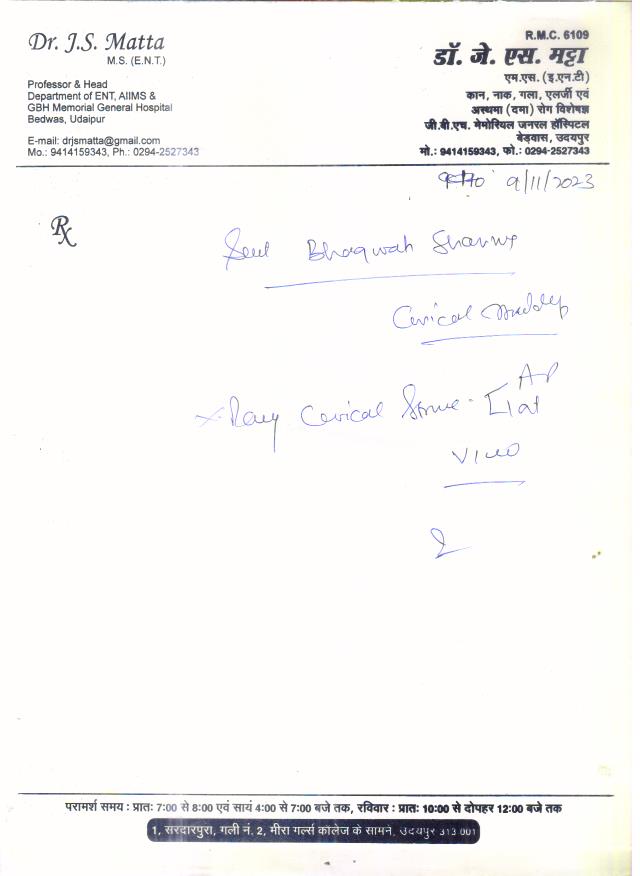 Dr. J.S. Matta
M.S. (E.N.T.)
Professor & Head
Department of ENT, AIIMS &
GBH Memorial General Hospital
Bedwas, Udaipur
E-mail: drjsmatta@gmail.com
Mo.: 9414159343, Ph.: 0294-2527343
R.M.C. 6109
डॉ. जे. एस. मट्टा
एम.एस. (इ.एन.टी)
कान, नाक, गला, एलर्जी एवं
अस्थमा (दमा) रोग विशेषज्ञ
जी.बी.एच. मेमोरियल जनरल हॉस्पिटल
बेड़वास, उदयपुर
मो.: 9414159343, फो.: 0294-2527343
9/11/2023
Rx
Bhagwati Sharma
Cervical
X-Ray Cervical Spine - AP
Lat
View
परामर्श समय : प्रातः 7:00 से 8:00 एवं सायं 4:00 से 7:00 बजे तक, रविवार : प्रातः 10:00 से दोपहर 12:00 बजे तक
1, सरदारपुरा, गली नं. 2, मीरा गर्ल्स कॉलेज के सामने, उदयपुर 313 001